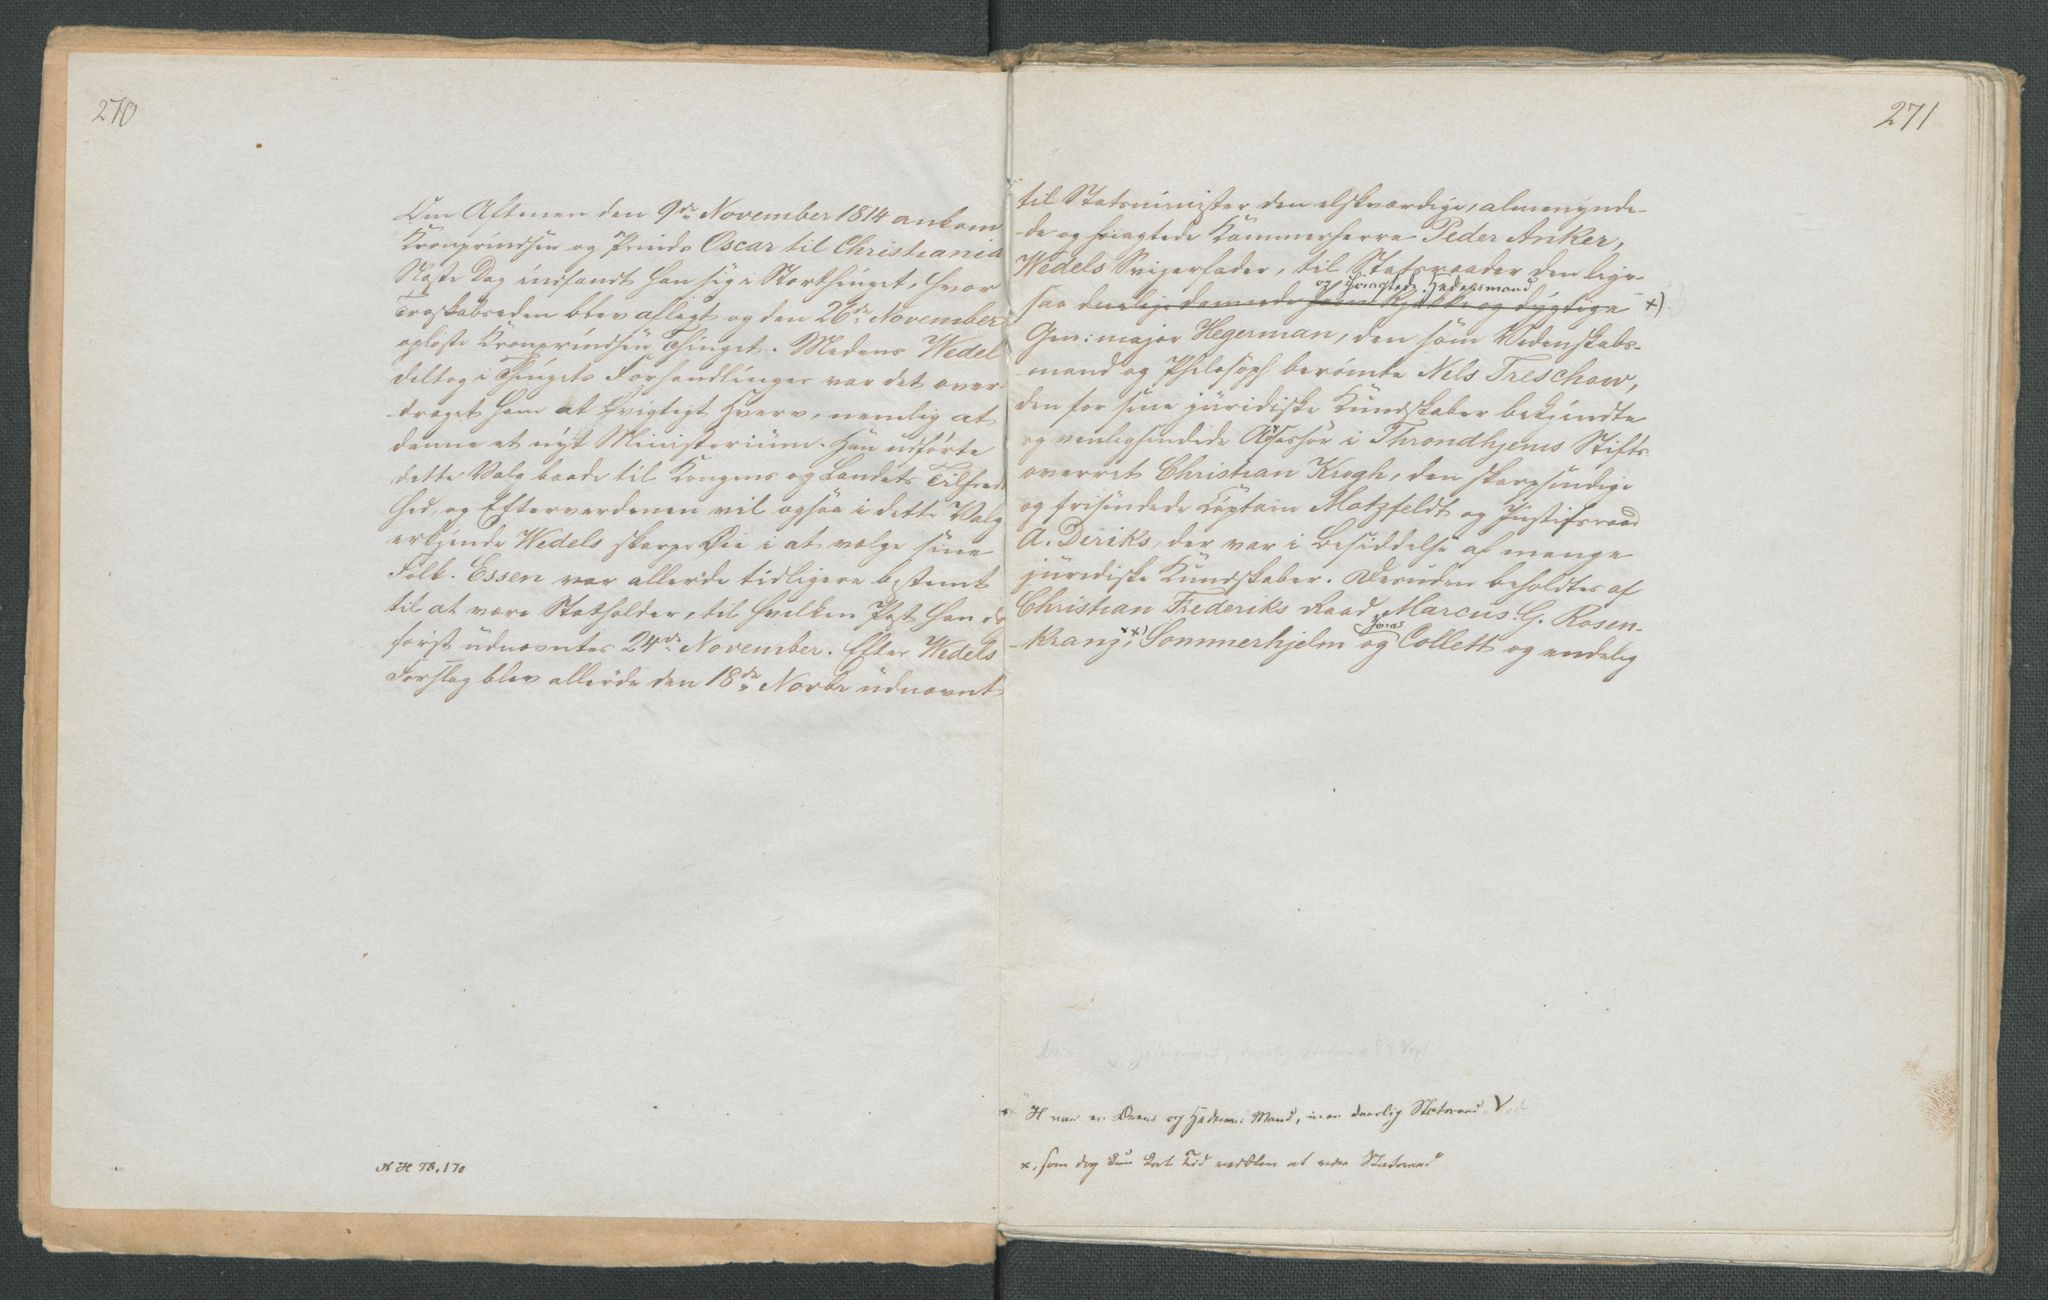 270
Om Aftenen den 9de November 1814 ankom
Kronprindsen og Prinds Oscar til Christiania
Næste Dag indfandt han sig i Storthinget, hvor
Troskabseden blev aflagt og den 26de November
opløste Kronprindsen Thinget. Medens Wedel
deltog i Thingets Forhandlinger var det over-
draget ham et vigtigt Hverv, nemlig at
danne et nyt Ministerium. Han udførte
dette Valg baade til Kongens og Landets Tilfreds
hed, og Efterverdenen vil ogsaa i dette Valg
erkjende Wedels skarpe Øie i at vælge sine
Folk. Essen var allerede tidligere bestemt
til at være Statholder, til hvilken Post han da
først udnævntes 24de November. Efter Wedels
Forslag blev allerede den 18de Novbr udnævnt
N H 78, 170
271
til Statsminister den elskværdige, almeenynde-
de og høiagtede Kammerherre Peder Anker,
Wedels Svigerfader, til Statsraader den lige-
og høiagtede Hedersmand
saa dannede som kjække og dygtige x)
Gen: major Hegerman, den som Videnskabs-
mand og Philosoph berømte Nels Treschow,
den for sine juridiske Kundskaber bekjendte
og venligsindede Assessor i Throndhjems Stifts
overret Christian Krogh, den skarpsindige
og frisindede Captain Motzfeldt og Justitsraad
A. Diriks, der var i Besiddelse af mange
juridiske Kundskaber. Desuden beholdtes af
Christian Frederiks Raad, Marcus G. Rosen-
Jonas
kranz, xx) Sommerhjelm og Collett og endelig
x H var en Ærens og Heders Mand, men daarlig Statsraad. V
x, som dog kun kort Tid vedblev at være Statsraad